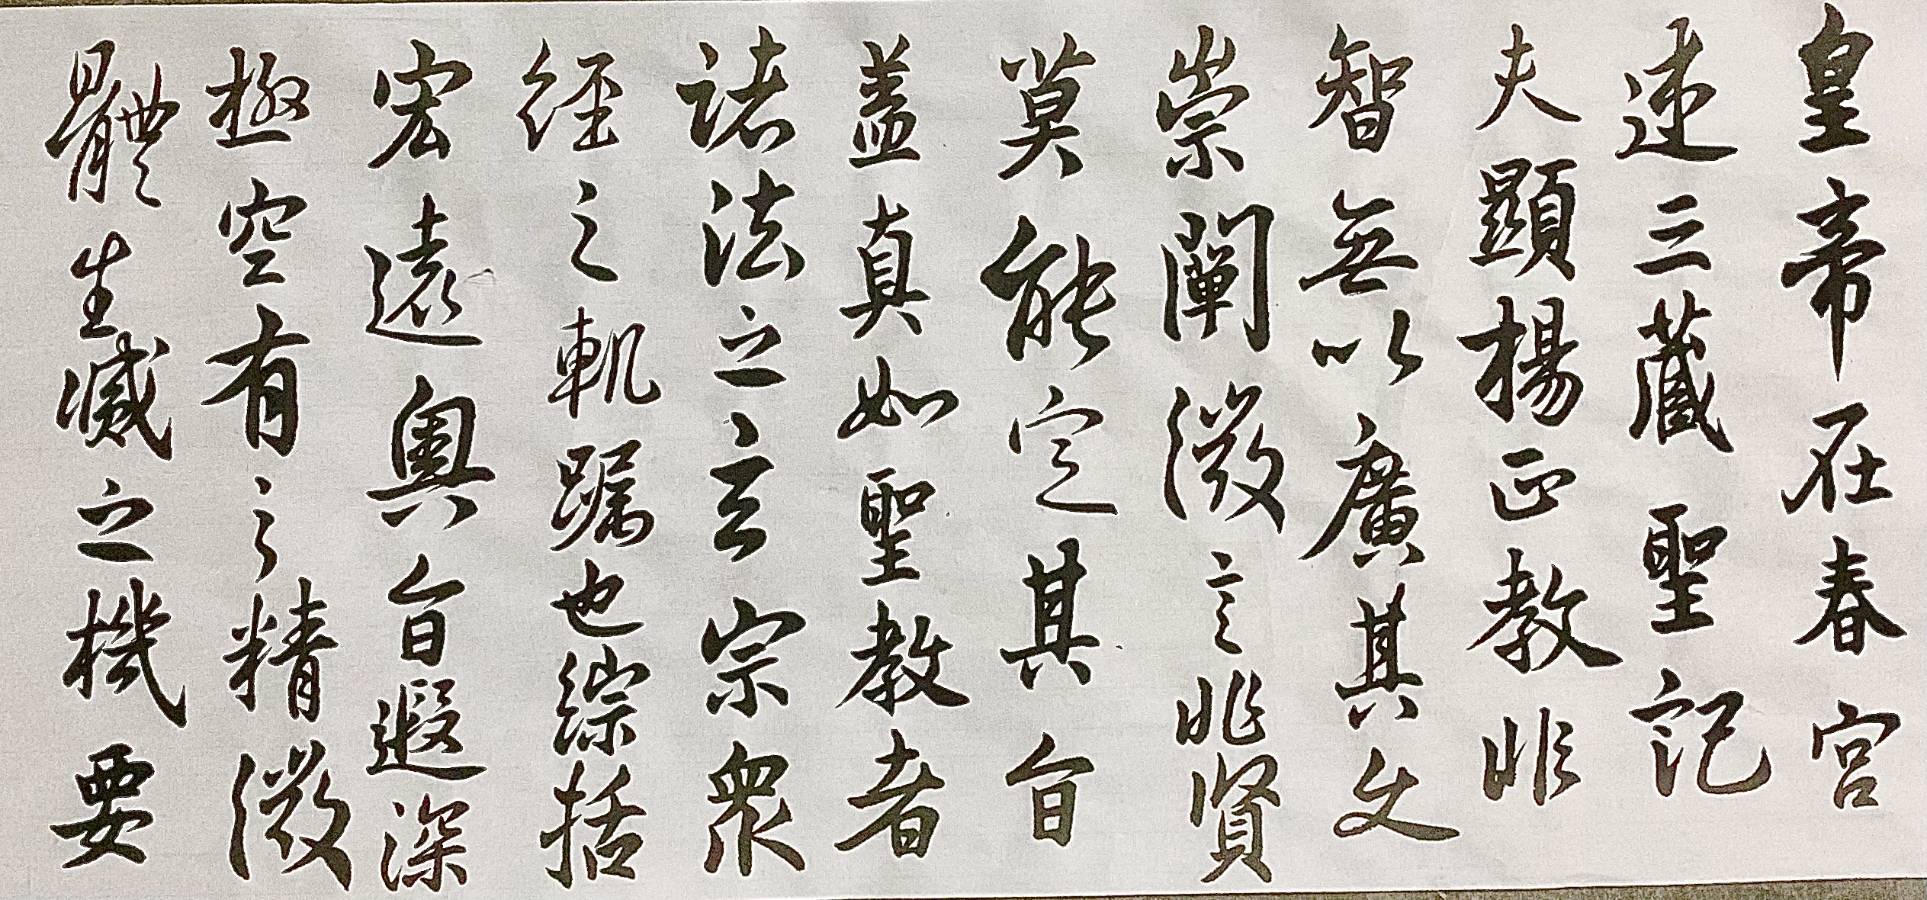 皇帝在春宮
述三蔵聖記
夫顯揚正教非
智無以廣其文
崇闡微言非賢
莫能定其旨
蓋真如聖教者
諸法之玄宗衆
經之軌躅也綜括
宏遠奧旨遐深
極空有之精微
體生滅之機要